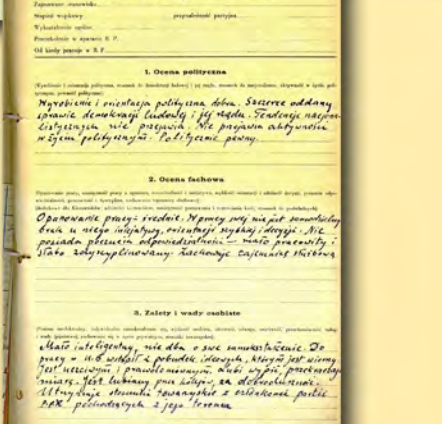 Zajmowane stanowisko
Stopień wojskowy przynależność partyjna
Wykształcenie ogólne
Przeszkolenie w aparacie B. P.
Od kiedy pracuje w B. P.
1. Ocena polityczna
(Wyrobienie i orientacja polityczna, stosunek do demokracji ludowej i jej rządu, stosunek do nacjonalizmu, aktywność w życiu politycznym, pewność polityczna)
Wyrobienie i orientacja polityczna dobra. Szczerze oddany
sprawie demokracji ludowej i jej rządu. Tendencje nacjona-
listycznych nie przejawia. Nie przejawia aktywności
w życiu politycznym. Politycznie pewny.
2. Ocena fachowa
Opanowanie pracy średnie. W pracy swej nie jest samodzielny
brak u niego inicjatywy, orientacji szybkiej i decyzji. Nie
posiada poczucia odpowiedzialności — mało pracowity i
słabo zdyscyplinowany. Zachowuje tajemnicę służbową
3. Zalety i wady osobiste
Mało inteligentny, nie dba o swe samokształcenie. Do
pracy w U.B wstąpił z pobudek ideowych, którym jest wierny.
Jest uczciwym i prawdomównym. Lubi wypić, przekraczaj
miarę. Jest lubiany przez kolegów, za dobroduszność.
Utrzymuje stosunki towarzyskie z członkami partii
PPR pochodzących z jego terenu